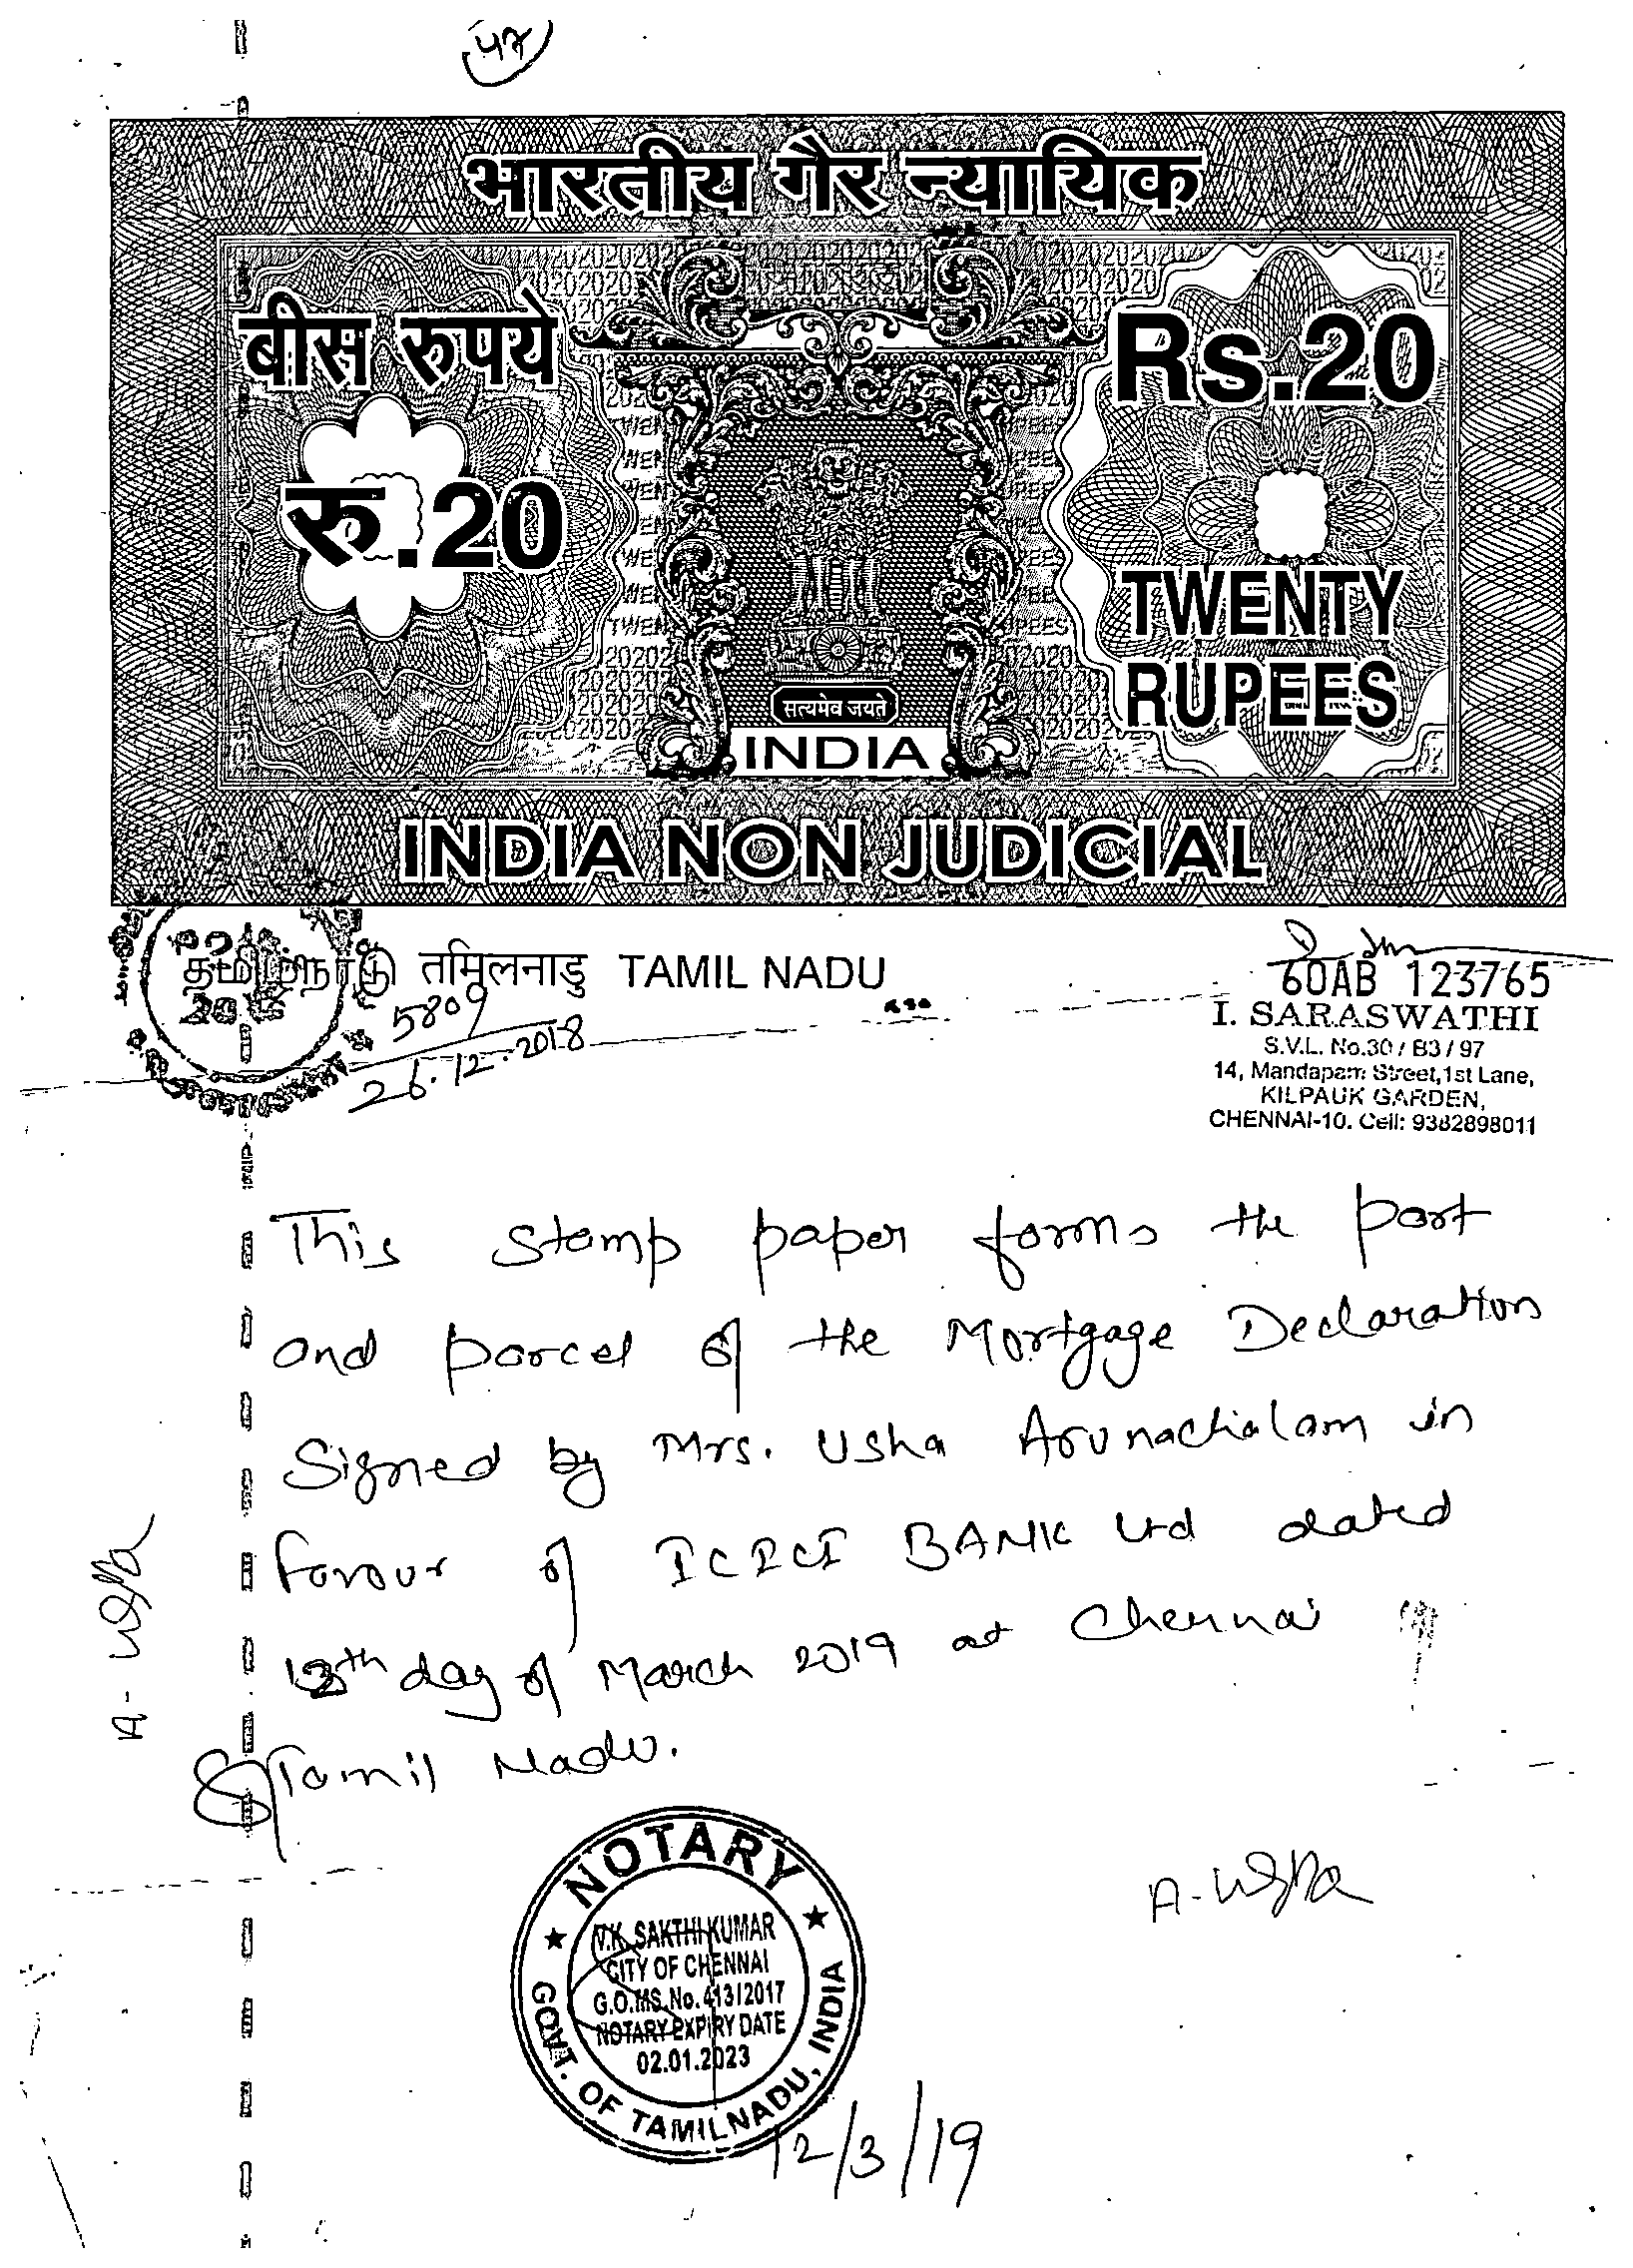 भारतीय गैर न्यायिक
बीस रुपये
Rs.20
रु.20
TWENTY
RUPEES
सत्यमेव जयते
INDIA
INDIA NON JUDICIAL
தமிழ்நாடு तमिलनाडु TAMIL NADU
60AB 123765
5809
26.12.2018
I. SARASWATHI
S.V.L. No.30 / B3 / 97
14, Mandapam Street, 1st Lane,
KILPAUK GARDEN,
CHENNAI-10. Cell: 9382898011
This stamp paper forms the part
and parcel of the Mortgage Declaration
Signed by Mrs. Usha Arunachalam in
favour of ICICI BANK Ltd dated
12th day of March 2019 at Chennai
Tamil Nadu.
A. Usha
A. Usha
NOTARY
V.K. SAKTHI KUMAR
CITY OF CHENNAI
G.O.MS.No.413/2017
NOTARY EXPIRY DATE
02.01.2023
GOVT. OF TAMILNADU, INDIA
12/3/19